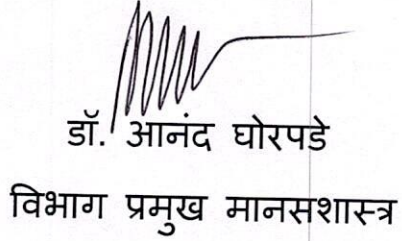 डॉ. आनंद घोरपडे
विभाग प्रमुख मानसशास्त्र